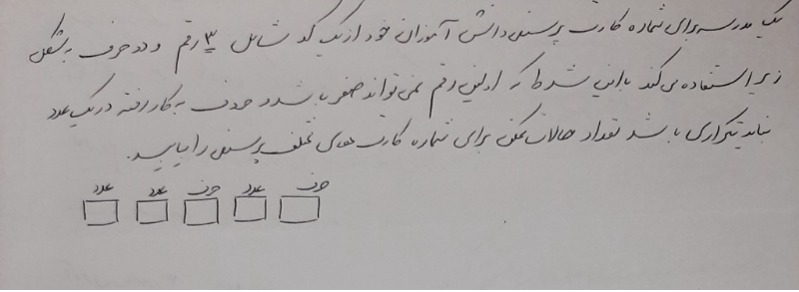 یک مدرسه برای شماره کارت پرسنلی دانش آموزان خود از یک کد شامل ۳ رقم و دو حرف به شکل
زیر استفاده می کند با این شرط که اولین رقم نمی تواند صفر باشد و حروف به کار رفته در یک عدد
نباید تکراری باشد تعداد حالات ممکن برای شماره کارت های مختلف پرسنلی را بیابید.
حرف عدد حرف عدد عدد